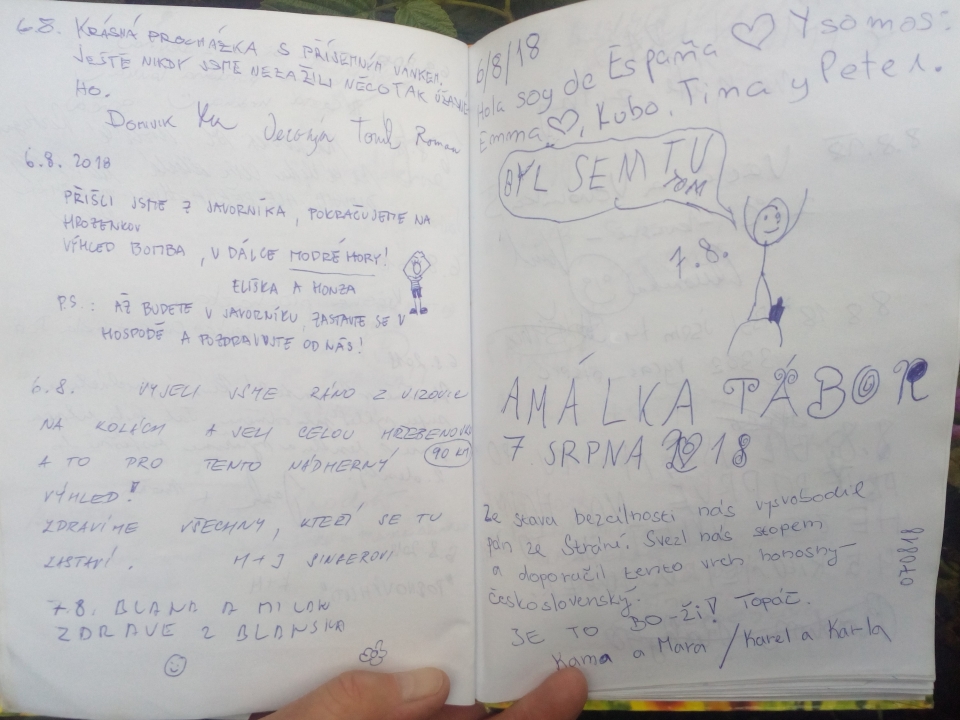 6.8. KRÁSNÁ PROCHÁZKA S PŘÍJEMNÝM VÁNKEM.
JEŠTĚ NIKDY JSME NEZAŽILI NĚCO TAK
HO.
DOMINIK Roman
6.8. 2018
PŘIŠLI JSME Z JAVORNÍKA, POKRAČUJEME NA
HROZENKOV
VÝHLED BOMBA, V DÁLCE MODRÉ HORY!
ELIŠKA A HONZA
P.S.: AŽ BUDETE V JAVORNÍKU, ZASTAVTE SE V
HOSPODĚ A POZDRAVUJTE OD NÁS!
6.8. VYJELI JSME RÁNO Z VIZOVIC
NA KOLÁCH A JELI CELOU HŘEBENOVKU
A TO PRO TENTO NÁDHERNÝ 90 KM
VÝHLED!
ZDRAVÍME VŠECHNY, KTEŘÍ SE TU
ZASTAVÍ. M+J SINGEROVI
7.8. BLANA A MILAN
ZDRAVE Z BLANSKA
6/8/18
Hola soy de España ♡ Y somos:
Emma ♡, Kubo, Tina y Peter.
BYL SEM TU
TOM
7.8.
AMÁLKA TÁBOR
7 SRPNA 2018
Ze stava bezálnosti nás vysvobodil
pán ze Strání. Svezl nás stopem
a doporučil tento vrch honosný-
československý.
JE TO BO-ŽÍ! TOPÁZ.
Kama a Mara / Karel a Karla
070818